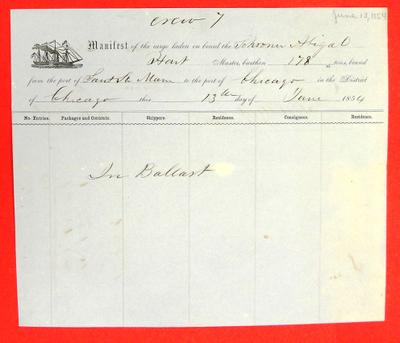 crew 7
June 13, 1854
Manifest of the cargo laden on board the Schooner Abigal
Hart Master, burthen 178 tons, bound
from the port of Saut Ste Marie to the port of Chicago in the District
of Chicago this 13th day of June 1854
No. Entries. Packages and Contents. Shippers. Residence. Consignees. Residence.
In Ballast